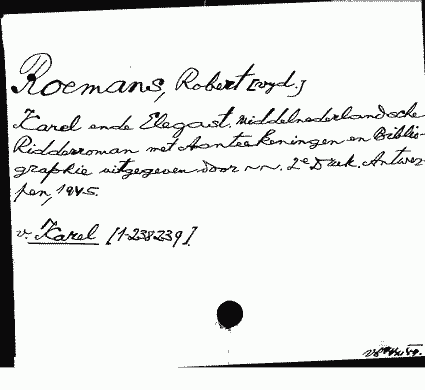 Roemans, Robert [wyd.]
Karel ende Elegast. Middelnederlandsche
Ridderroman met Aanteekeningen en Biblio-
graphie uitgegeven door nn. 2e Druk. Antwer-
pen, 1945.
v. Karel [1-238239]